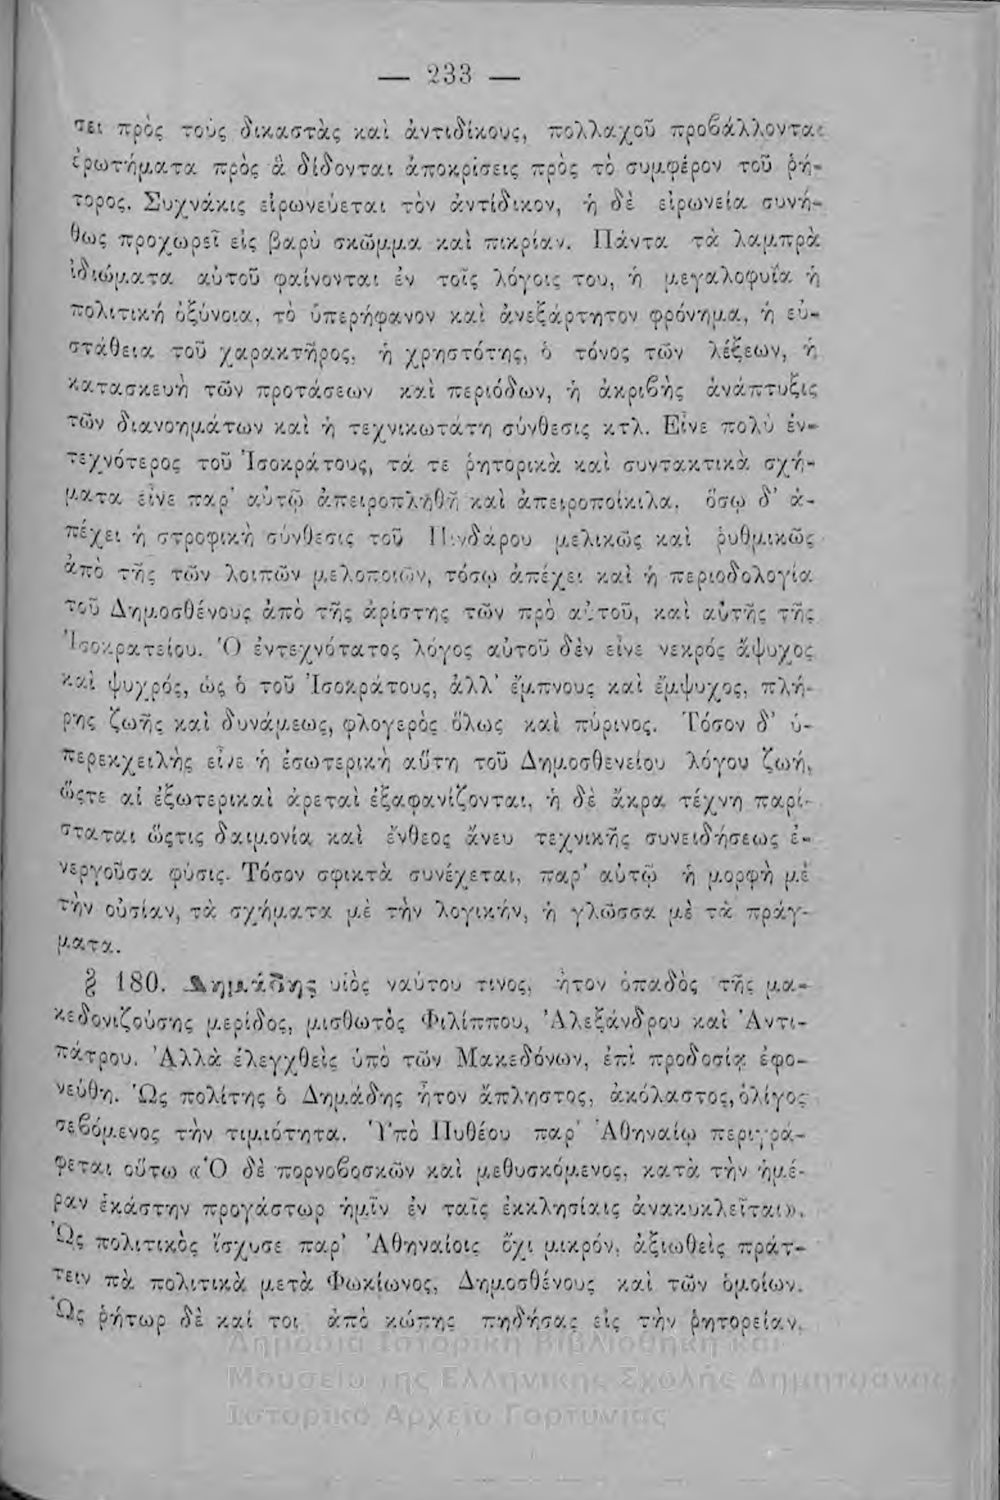 — 233 —
σει πρὸς τοὺς δικαστὰς καὶ ἀντιδίκους, πολλαχοῦ προβάλλονται
ἐρωτήματα πρὸς ἃ δίδονται ἀποκρίσεις πρὸς τὸ συμφέρον τοῦ ῥή-
τορος. Συχνάκις εἰρωνεύεται τὸν ἀντίδικον, ἡ δὲ εἰρωνεία συνή-
θως προχωρεῖ εἰς βαρὺ σκῶμμα καὶ πικρίαν. Πάντα τὰ λαμπρὰ
ἰδιώματα αὐτοῦ φαίνονται ἐν τοῖς λόγοις του, ἡ μεγαλοφυΐα ἡ
πολιτικὴ ὀξύνοια, τὸ ὑπερήφανον καὶ ἀνεξάρτητον φρόνημα, ἡ εὐ-
στάθεια τοῦ χαρακτῆρος, ἡ χρηστότης, ὁ τόνος τῶν λέξεων, ἡ
κατασκευὴ τῶν προτάσεων καὶ περιόδων, ἡ ἀκριβὴς ἀνάπτυξις
τῶν διανοημάτων καὶ ἡ τεχνικωτάτη σύνθεσις κτλ. Εἶνε πολὺ ἐν-
τεχνότερος τοῦ Ἰσοκράτους, τά τε ῥητορικὰ καὶ συντακτικὰ σχή-
ματα εἶνε παρ' αὐτῷ ἀπειροπληθῆ καὶ ἀπειροποίκιλα, ὅσῳ δ' ἀ-
πέχει ἡ στροφικὴ σύνθεσις τοῦ Πινδάρου μελικῶς καὶ ῥυθμικῶς
ἀπὸ τῆς τῶν λοιπῶν μελοποιῶν, τόσῳ ἀπέχει καὶ ἡ περιοδολογία
τοῦ Δημοσθένους ἀπὸ τῆς ἀρίστης τῶν πρὸ αὐτοῦ, καὶ αὐτῆς τῆς
Ἰσοκρατείου. Ὁ ἐντεχνότατος λόγος αὐτοῦ δὲν εἶνε νεκρός ἄψυχος
καὶ ψυχρός, ὡς ὁ τοῦ Ἰσοκράτους, ἀλλ' ἔμπνους καὶ ἔμψυχος, πλή-
ρης ζωῆς καὶ δυνάμεως, φλογερὸς ὅλως καὶ πύρινος. Τόσον δ' ὑ-
περεκχειλὴς εἶνε ἡ ἐσωτερικὴ αὕτη τοῦ Δημοσθενείου λόγου ζωή,
ὥςτε αἱ ἐξωτερικαὶ ἀρεταὶ ἐξαφανίζονται, ἡ δὲ ἄκρα τέχνη παρί-
σταται ὥςτις δαιμονία καὶ ἔνθεος ἄνευ τεχνικῆς συνειδήσεως ἐ-
νεργοῦσα φύσις. Τόσον σφικτὰ συνέχεται, παρ' αὐτῷ ἡ μορφὴ μὲ
τὴν οὐσίαν, τὰ σχήματα μὲ τὴν λογικήν, ἡ γλῶσσα μὲ τὰ πράγ-
ματα.
§ 180. Δημάδης υἱὸς ναύτου τινος, ἦτον ὀπαδὸς τῆς μα-
κεδονιζούσης μερίδος, μισθωτὸς Φιλίππου, Ἀλεξάνδρου καὶ Ἀντι-
πάτρου. Ἀλλὰ ἐλεγχθεὶς ὑπὸ τῶν Μακεδόνων, ἐπὶ προδοσίᾳ ἐφο-
νεύθη. Ὡς πολίτης ὁ Δημάδης ἦτον ἄπληστος, ἀκόλαστος, ὀλίγος
σεβόμενος τὴν τιμιότητα. Ὑπὸ Πυθέου παρ' Ἀθηναίῳ περιγρά-
φεται οὕτω «Ὁ δὲ πορνοβοσκῶν καὶ μεθυσκόμενος, κατὰ τὴν ἡμέ-
ραν ἑκάστην προγάστωρ ἡμῖν ἐν ταῖς ἐκκλησίαις ἀνακυκλεῖται».
Ὡς πολιτικὸς ἴσχυσε παρ' Ἀθηναίοις ὄχι μικρόν, ἀξιωθεὶς πράτ-
τειν πὰ πολιτικὰ μετὰ Φωκίωνος, Δημοσθένους καὶ τῶν ὁμοίων.
Ὡς ῥήτωρ δὲ καί τοι ἀπὸ κώπης πηδήσας εἰς τὴν ῥητορείαν,
Δημόσια Ιστορική Βιβλιοθήκη και
Μουσείο της Ελληνικής Σχολής Δημητσάνας
Ιστορικό Αρχείο Γορτυνίας